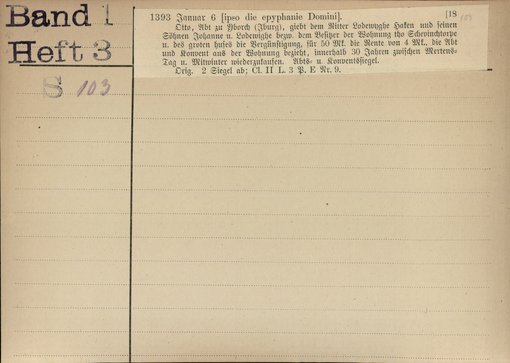 Band 1
Heft 3
S 103
1393 Januar 6 [ipso die epyphanie Domini]. [18
103
Otto, Abt zu Yborch (Iburg), giebt dem Ritter Lodewyghe Haken und seinen
Söhnen Johanne u. Lodewighe bezw. dem Besitzer der Wohnung tho Schevinchtorpe
u. des groten husés die Vergünstigung, für 50 Mk. die Rente von 4 Mk., die Abt
und Konvent aus der Wohnung bezieht, innerhalb 30 Jahren zwischen Mertens-
Tag u. Mitwinter wiederzukaufen. Abts- u. Konventssiegel.
Orig. 2 Siegel ab; Cl. II L. 3 P. E Nr. 9.